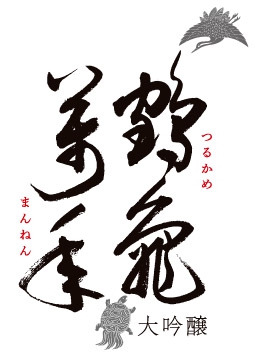 鶴亀
つるかめ
萬年
まんねん
大吟醸